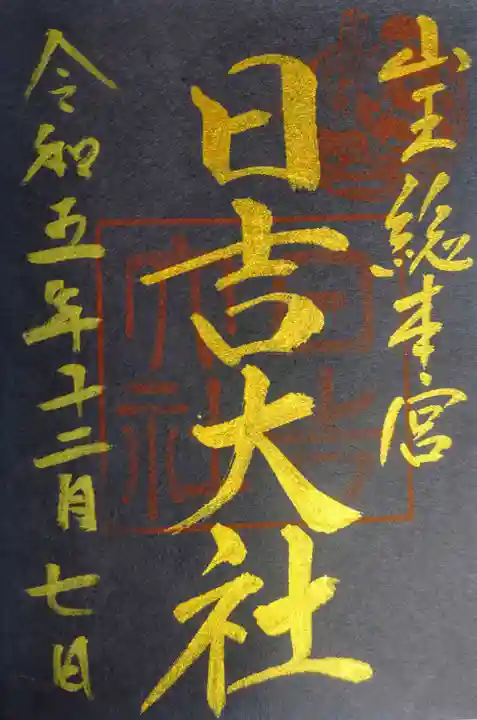 山王総本宮
日吉大社
令和五年十二月七日
日吉大社